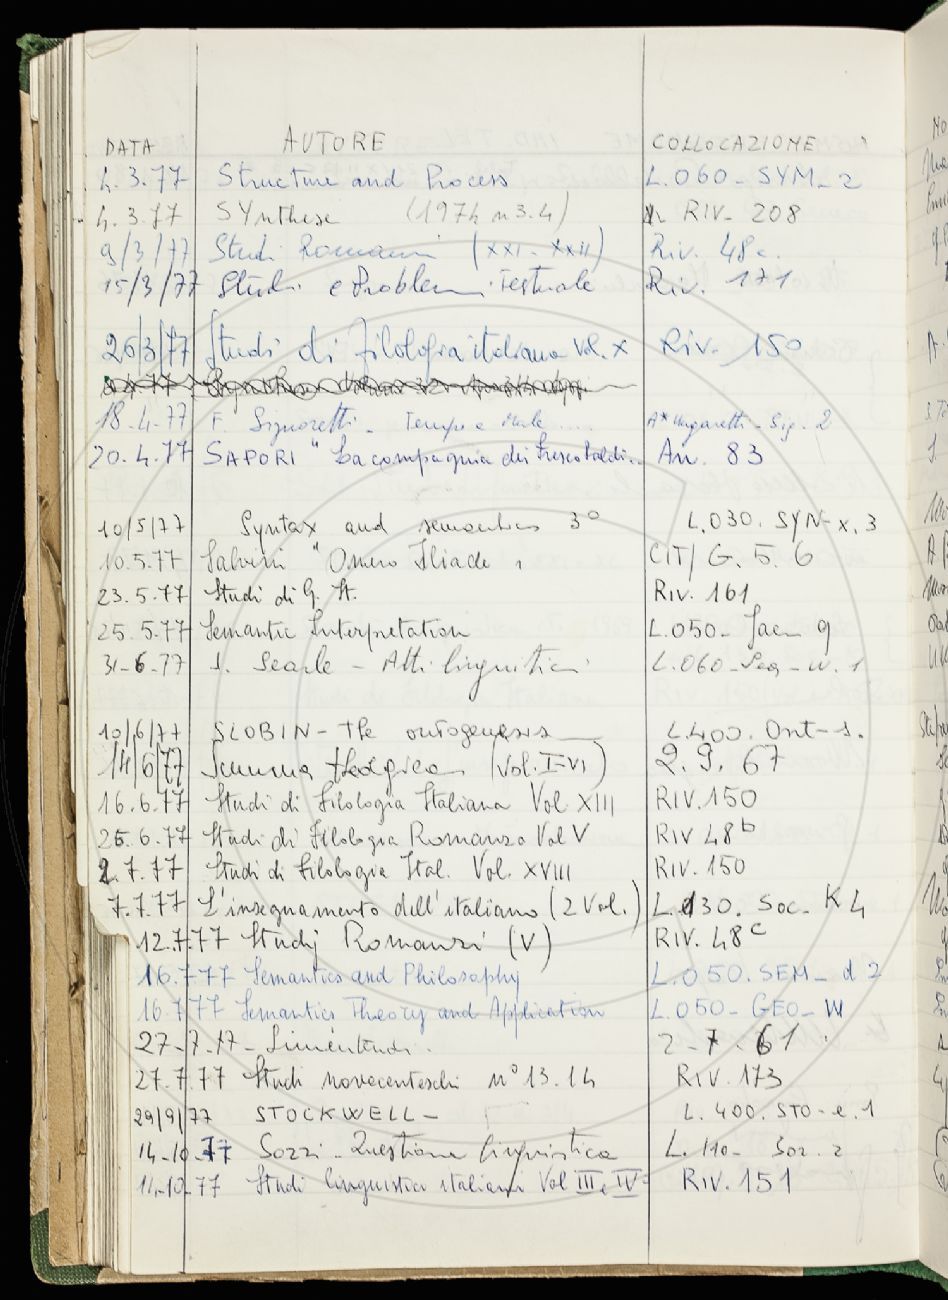 DATA AUTORE COLLOCAZIONE
4.3.77 Structure and Process L.060-SYM-2
4.3.77 SYnthese (1974 n 3.4) RIV-208
9/3/77 Studi Romanzi (XXI-XXII) Riv. 48c.
15/3/77 Studi e Problemi Testuale Riv. 171
26/3/77 Studi di filologia italiana Vol. X Riv. 150
18.4.77 F. Signoretti - Tempo e Male.... A* Ungaretti - Sig. 2
20.4.77 SAPORI "La compagnia dei Frescobaldi.. An. 83
10/5/77 Syntax and semantics 3° L.030. SYN-x.3
10.5.77 Salvini "Omero Iliade CIT/ G.5.6
23.5.77 Studi di G. It. RIV. 161
25.5.77 Semantic Interpretation L.050-Jac g
31-6-77 J. Searle - Atti linguistici L.060-Sea-w.1
10/6/77 SLOBIN - The ontogenesis L.400. Ont-s.
14/6/77 Summa (Vol. I-VI) 2.9.67
16.6.77 Studi di Filologia Italiana Vol XIII RIV.150
25.6.77 Studi di Filologia Romanza Vol V RIV 48b
2.7.77 Studi di Filologia Ital. Vol. XVIII RIV.150
7.7.77 L'insegnamento dell'italiano (2 Vol.) L.130. Soc. K4
12.7.77 Studj Romanzi (V) RIV. 48c
16.7.77 Semantics and Philosophy L.050.SEM-d 2
16.7.77 Semantics Theory and Application L.050-GEO-W
27-7-77- 2-7-61
27.7.77 Studi novecenteschi n° 13.14 RIV.173
29/9/77 STOCKWELL- L.400.STO-e.1
14-10-77 Sozzi - Questione linguistica L.110- Soz. 2
14-10-77 Studi linguistica italiana Vol III, IV RIV. 151